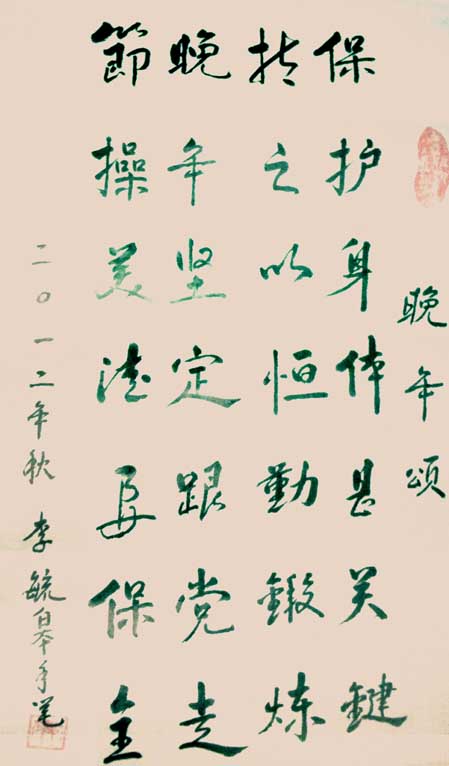 晚年颂
保护身体甚关鍵
持之以恒勤鍛炼
晚年坚定跟党走
節操美德要保全
二〇一二年秋 李毓皋手笔